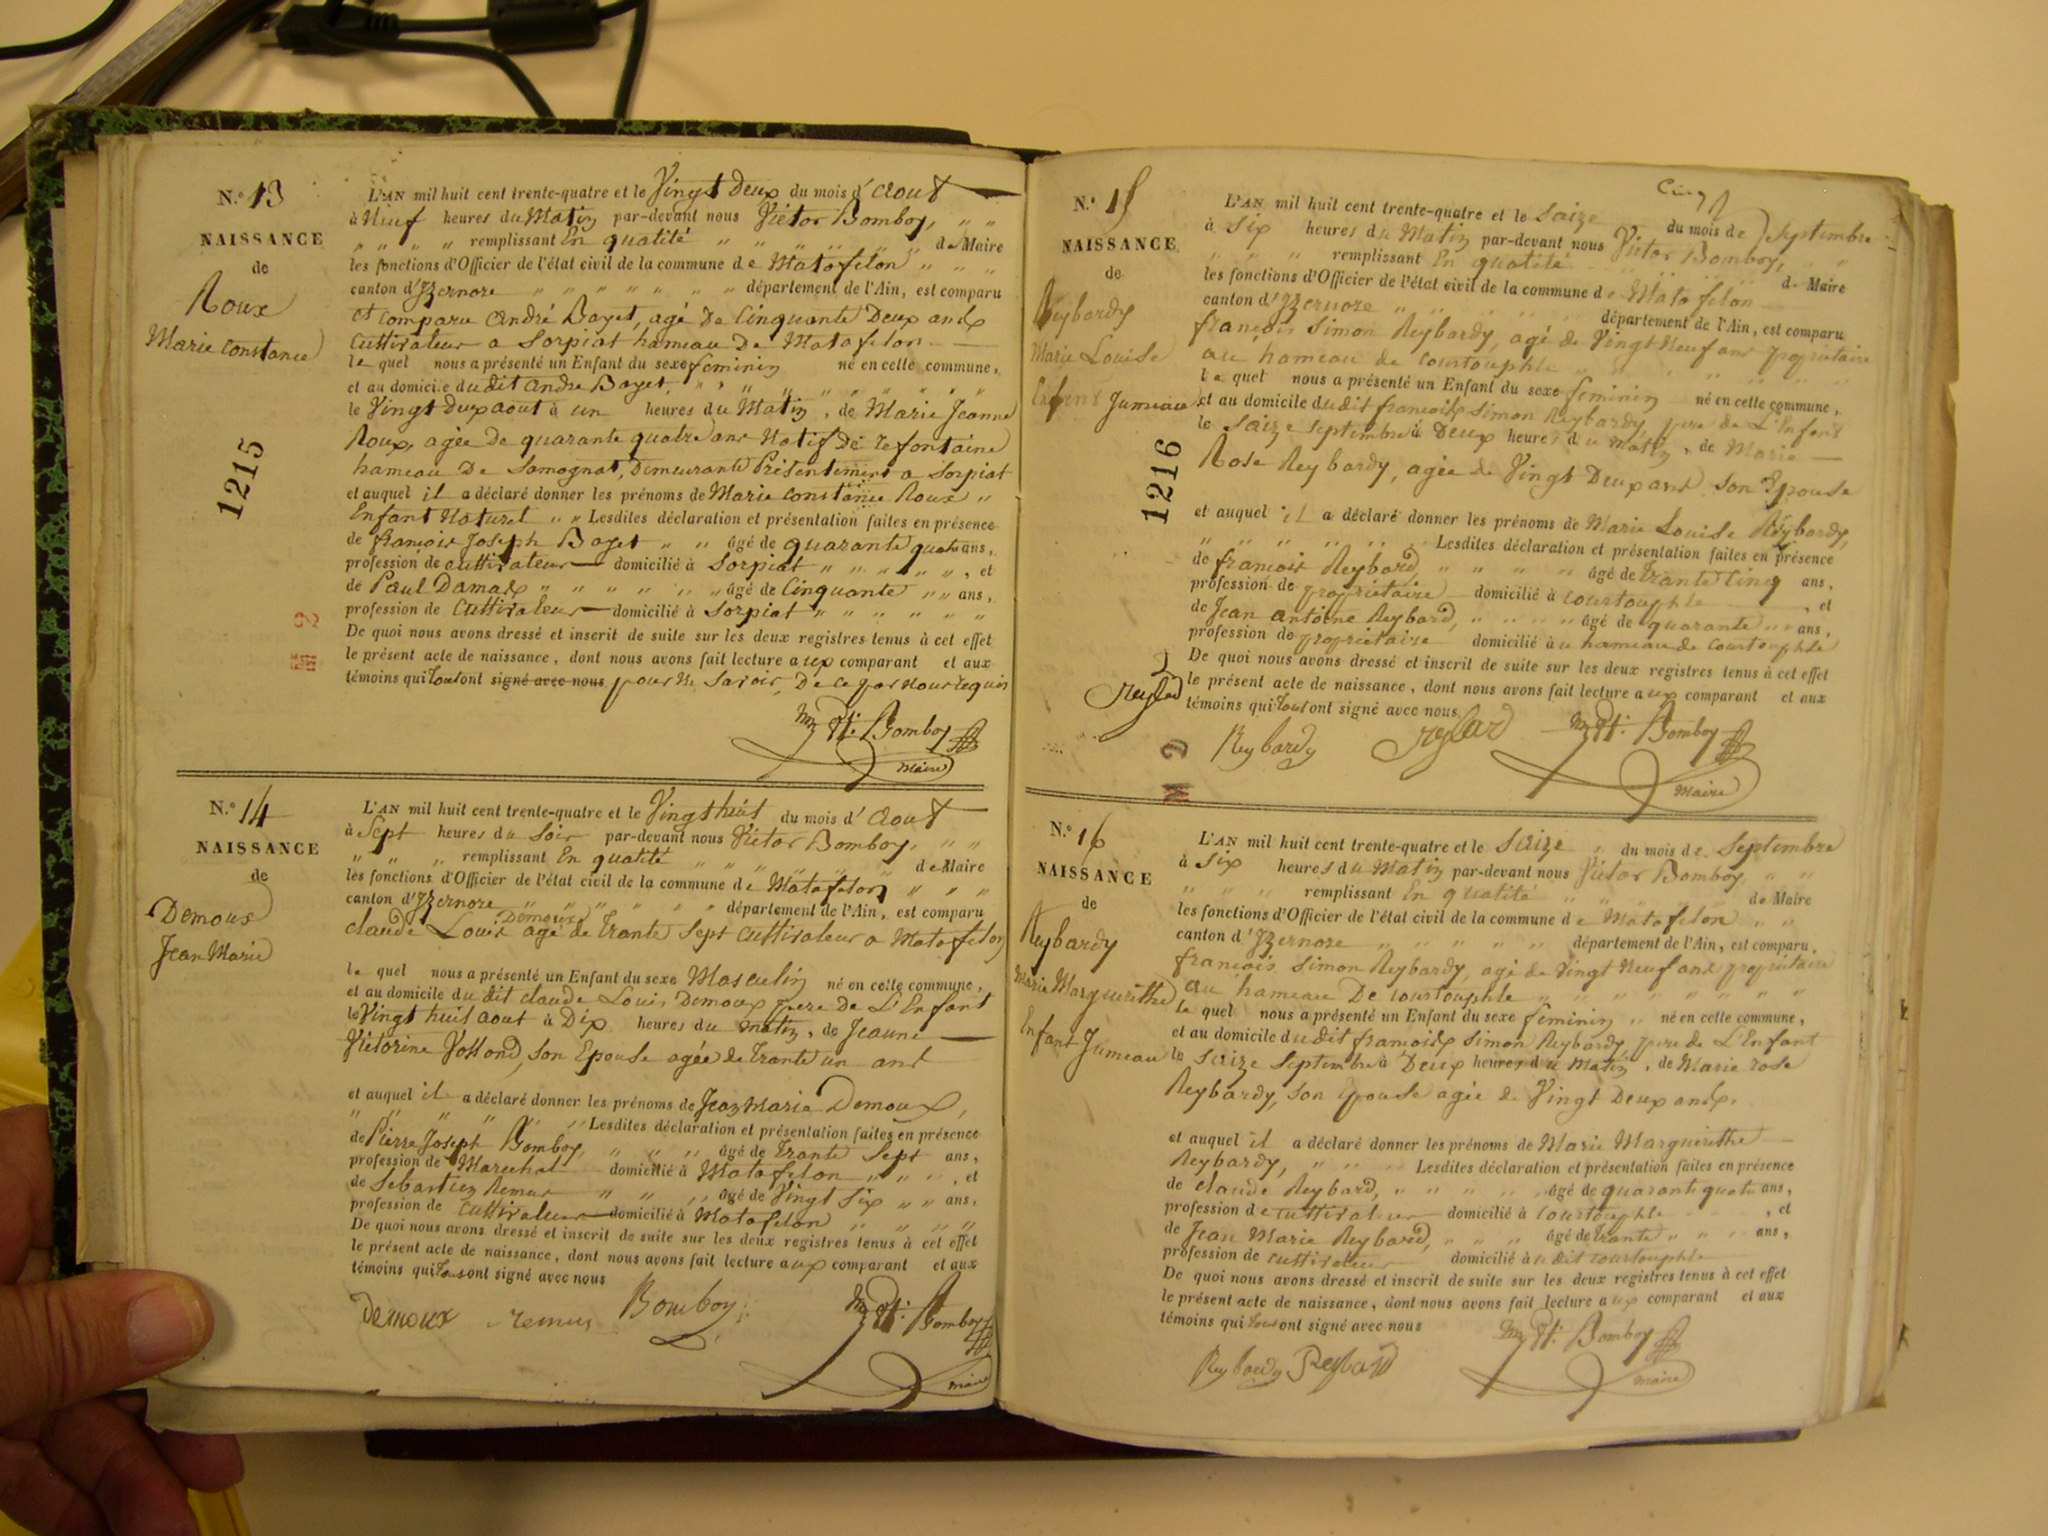 N.º 13
NAISSANCE
de
Roux
Marie constance
1215
L'AN mil huit cent trente-quatre et le Vingt Deux du mois d' aout
à Neuf heures du Matin par-devant nous Victor Bomboy, " "
" " " " remplissant En qualité " " " " " " de Maire
les fonctions d'Officier de l'état civil de la commune de Matafelon " " "
canton d'Izernore " " " " " " " département de l'Ain, est comparu
et comparu andré Bayet, agé De Cinquante Deux ans
Cultivateur a Sorpiat hameau De Matafelon
le quel nous a présenté un Enfant du sexe feminin né en cette commune,
et au domicile du dit andre Bayet, " " " " " " " "
le Vingt Deux aout à un heures du Matin, de Marie Jeanne
Roux, agée De quarante quatre ans Natif De
hameau De Samognat, Demeurante Présentement a Sorpiat
et auquel il a déclaré donner les prénoms de Marie constance Roux "
Enfant Naturel " " Lesdites déclaration et présentation faites en présence
de françois Joseph Bayet " " âgé de quarante quatre ans,
profession de cultivateur domicilié à Sorpiat " " " " " , et
de Paul Damas " " " " " " âgé de Cinquante " " ans,
profession de Cultivateur domicilié à Sorpiat " " " " " "
De quoi nous avons dressé et inscrit de suite sur les deux registres tenus à cet effet
le présent acte de naissance, dont nous avons fait lecture aux comparant et aux
témoins qui tous ont signé avec nous pour Ne Savoir, De ce par Nous requis
Bomboy
Maire
N.º 14
NAISSANCE
de
Demoux
Jean Marie
L'AN mil huit cent trente-quatre et le Vingt huit du mois d' aout
à Sept heures du Soir par-devant nous Victor Bomboy, " "
" " " remplissant En qualité " " " " " " de Maire
les fonctions d'Officier de l'état civil de la commune de Matafelon " " "
canton d'Izernore " " " " " " département de l'Ain, est comparu
Demoux
claude Louis agé de trante Sept cultivateur a Matafelon
le quel nous a présenté un Enfant du sexe Masculin né en cette commune,
et au domicile du dit claude Louis Demoux pere De L'Enfant
le Vingt huit aout à Dix heures du matin, de Jeanne
Victorine Volland, Son Epouse agée de trante un ans
et auquel il a déclaré donner les prénoms de Jean Marie Demoux,
" " " " " " Lesdites déclaration et présentation faites en présence
de Pierre Joseph Bomboy, " " " âgé de trante Sept ans,
profession de Marechal domicilié à Matafelon " " " , et
de Sebastien Remus " " " âgé de Vingt Six " " ans,
profession de cultivateur domicilié à Matafelon " " " "
De quoi nous avons dressé et inscrit de suite sur les deux registres tenus à cet effet
le présent acte de naissance, dont nous avons fait lecture aux comparant et aux
témoins qui tous ont signé avec nous
Demoux remus Bomboy Bomboy
maire
N.º 15
NAISSANCE
de
Reybardy
Marie Louise
Enfant Jumeau
1216
L'AN mil huit cent trente-quatre et le Saize du mois de Septembre
à Six heures du Matin par-devant nous Victor Bomboy, " "
" " " remplissant En qualité " " " " de Maire
les fonctions d'Officier de l'état civil de la commune de Matafelon
canton d'Izernore " " " " " " département de l'Ain, est comparu
françois Simon Reybardy, agé de Vingt Neuf ans propriétaire
au hameau de courtouphle " " " " " "
le quel nous a présenté un Enfant du sexe feminin né en cette commune,
et au domicile du dit françois Simon Reybardy, pere de L'Enfant
le Saize Septembre à Deux heures du Matin, de Marie
Rose Reybardy, agée de Vingt Deux ans Son Epouse
et auquel il a déclaré donner les prénoms de Marie Louise Reybardy,
" " " " " Lesdites déclaration et présentation faites en présence
de françois Reybard, " " " " âgé de trante Cinq ans,
profession de propriétaire domicilié à courtouphle , et
de Jean antoine Reybard, " " " " âgé de quarante " " ans,
profession de propriétaire domicilié au hameau de courtouphle
De quoi nous avons dressé et inscrit de suite sur les deux registres tenus à cet effet
le présent acte de naissance, dont nous avons fait lecture aux comparant et aux
témoins qui tous ont signé avec nous
Reybardy Bomboy
maire
N.º 16
NAISSANCE
de
Reybardy
Marie Marguerithe
Enfant Jumeau
L'AN mil huit cent trente-quatre et le Saize " du mois de Septembre
à Six heures du Matin par-devant nous Victor Bomboy, " "
" " " remplissant En qualité " " " " " de Maire
les fonctions d'Officier de l'état civil de la commune de Matafelon " "
canton d'Izernore " " " " " département de l'Ain, est comparu,
françois Simon Reybardy, agé de Vingt Neuf ans propriétaire
au hameau De courtouphle " " " " " " " "
le quel nous a présenté un Enfant du sexe feminin " né en cette commune,
et au domicile du dit françois Simon Reybardy, pere de L'Enfant
le Saize Septembre à Deux heures du Matin, de Marie rose
Reybardy, Son Epouse agée de Vingt Deux ans.
et auquel il a déclaré donner les prénoms de Marie Marguerithe
Reybardy, " " " " Lesdites déclaration et présentation faites en présence
de claude Reybard, " " " " âgé de quarante quatre ans,
profession de cultivateur domicilié à Courtouphle , et
de Jean Marie Reybard, " " " " âgé de trante " " " ans,
profession de cultivateur domicilié au dit courtouphle
De quoi nous avons dressé et inscrit de suite sur les deux registres tenus à cet effet
le présent acte de naissance, dont nous avons fait lecture aux comparant et aux
témoins qui tous ont signé avec nous
Reybardy Reybard Bomboy
maire